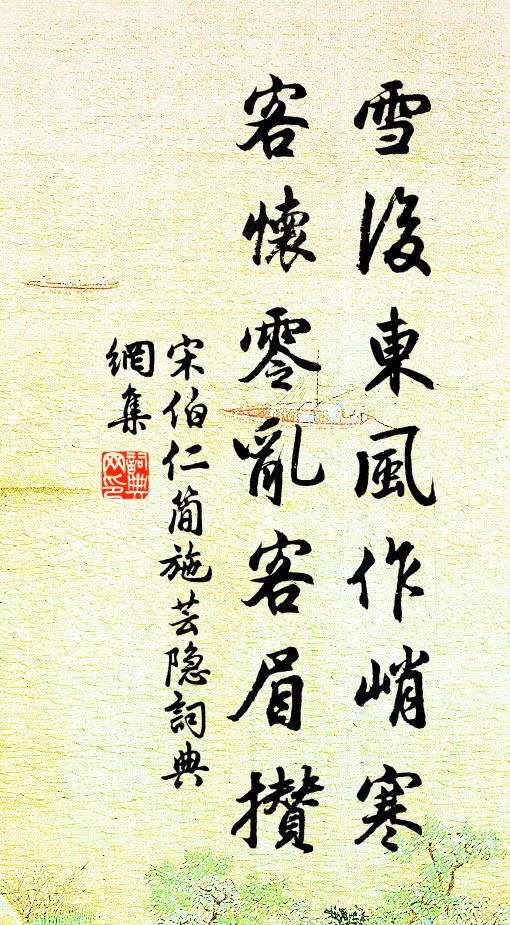 雪後東風作峭寒
客懷零亂客眉攢
宋伯仁簡施芸隐詞典
網集
詞典網印